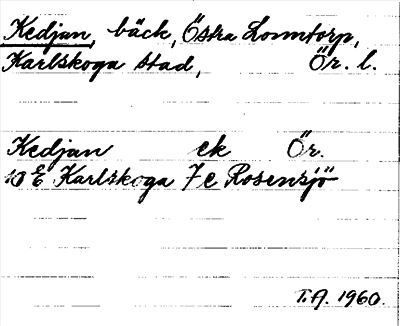 Kedjan, bäck, Östra Lonntorp,
Karlskoga stad, Ör. l.
Kedjan ek Ör.
10 E Karlskoga 7 c Rosensjö
T.A. 1960.